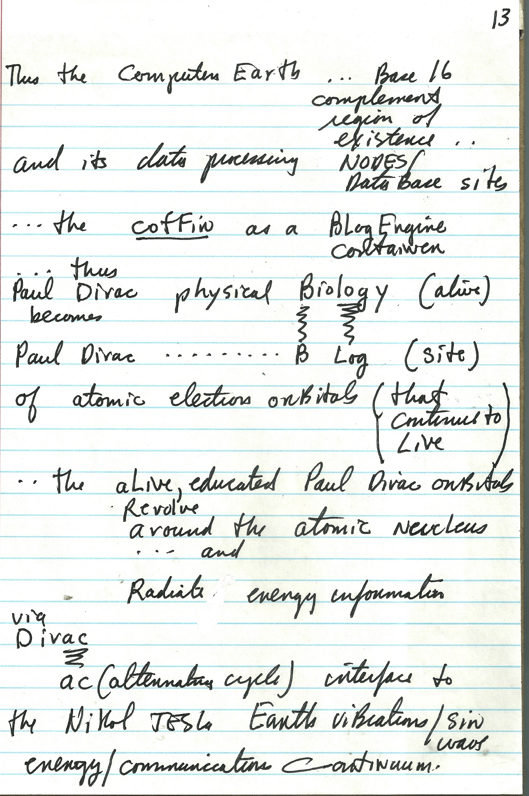 13
Thus the Computer Earth ... Base 16
complement
region of
existence ..
and its data processing NODES/
Data Base sites
... the coffin as a BLog Engine
container
.... thus
Paul Dirac physical Biology (alive)
becomes
Paul Dirac .......... B Log (site)
of atomic electron orbitals (that
continue to
Live)
.. the aLive, educated Paul Dirac orbitals
Revolve
around the atomic Neucleus
... and
Radiate energy information
via
Dirac
ac (alternating cycle) interface to
the Nikol TESLA Earth vibrations/sin
wave
energy/communication Continuum.